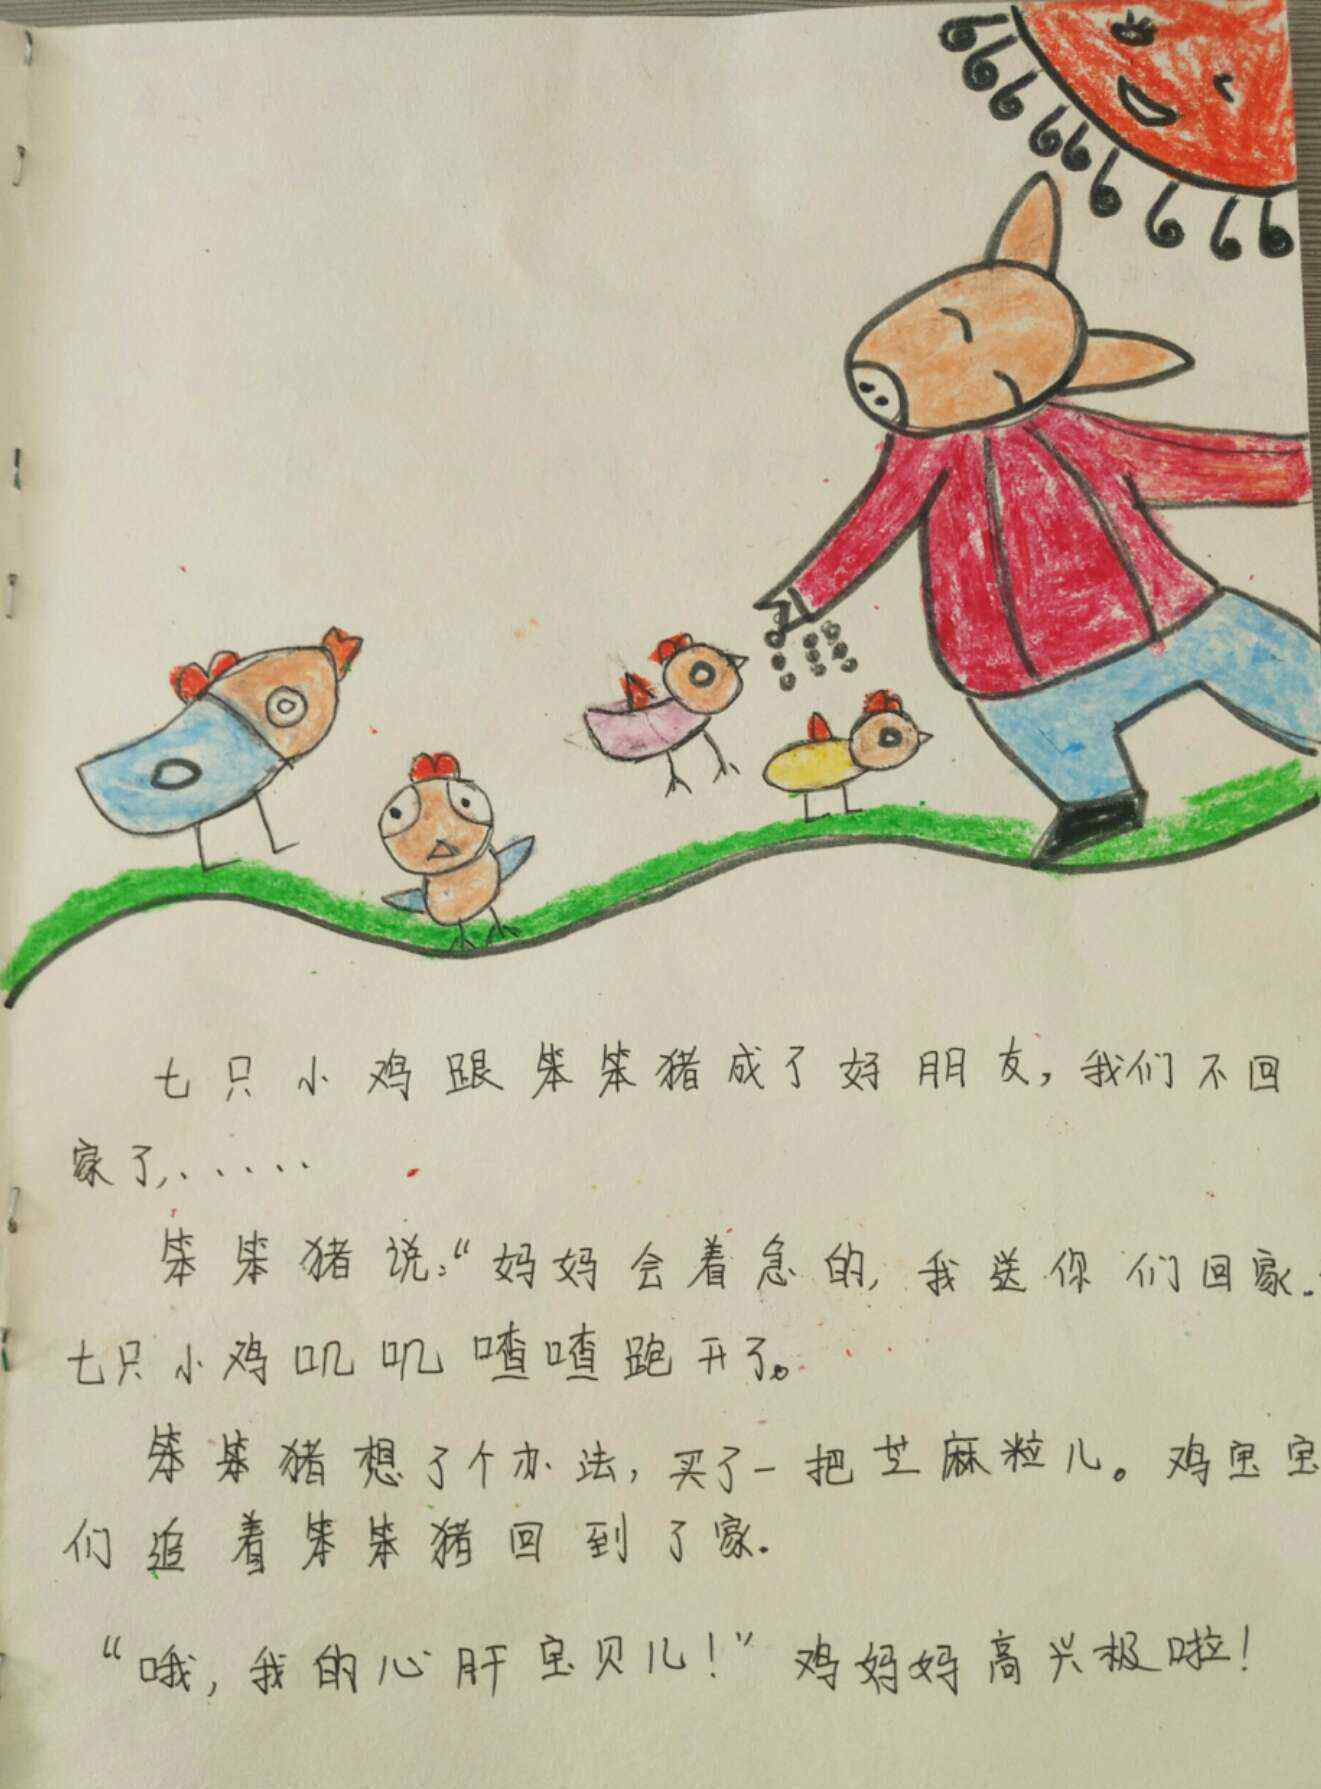 七只小鸡跟笨笨猪成了好朋友,我们不回
家了,·····
笨笨猪说:“妈妈会着急的,我送你们回家.
七只小鸡叽叽喳喳跑开了。
笨笨猪想了个办法,买了一把芝麻粒儿。鸡宝宝
们追着笨笨猪回到了家.
“哦,我的心肝宝贝儿!”鸡妈妈高兴极啦!